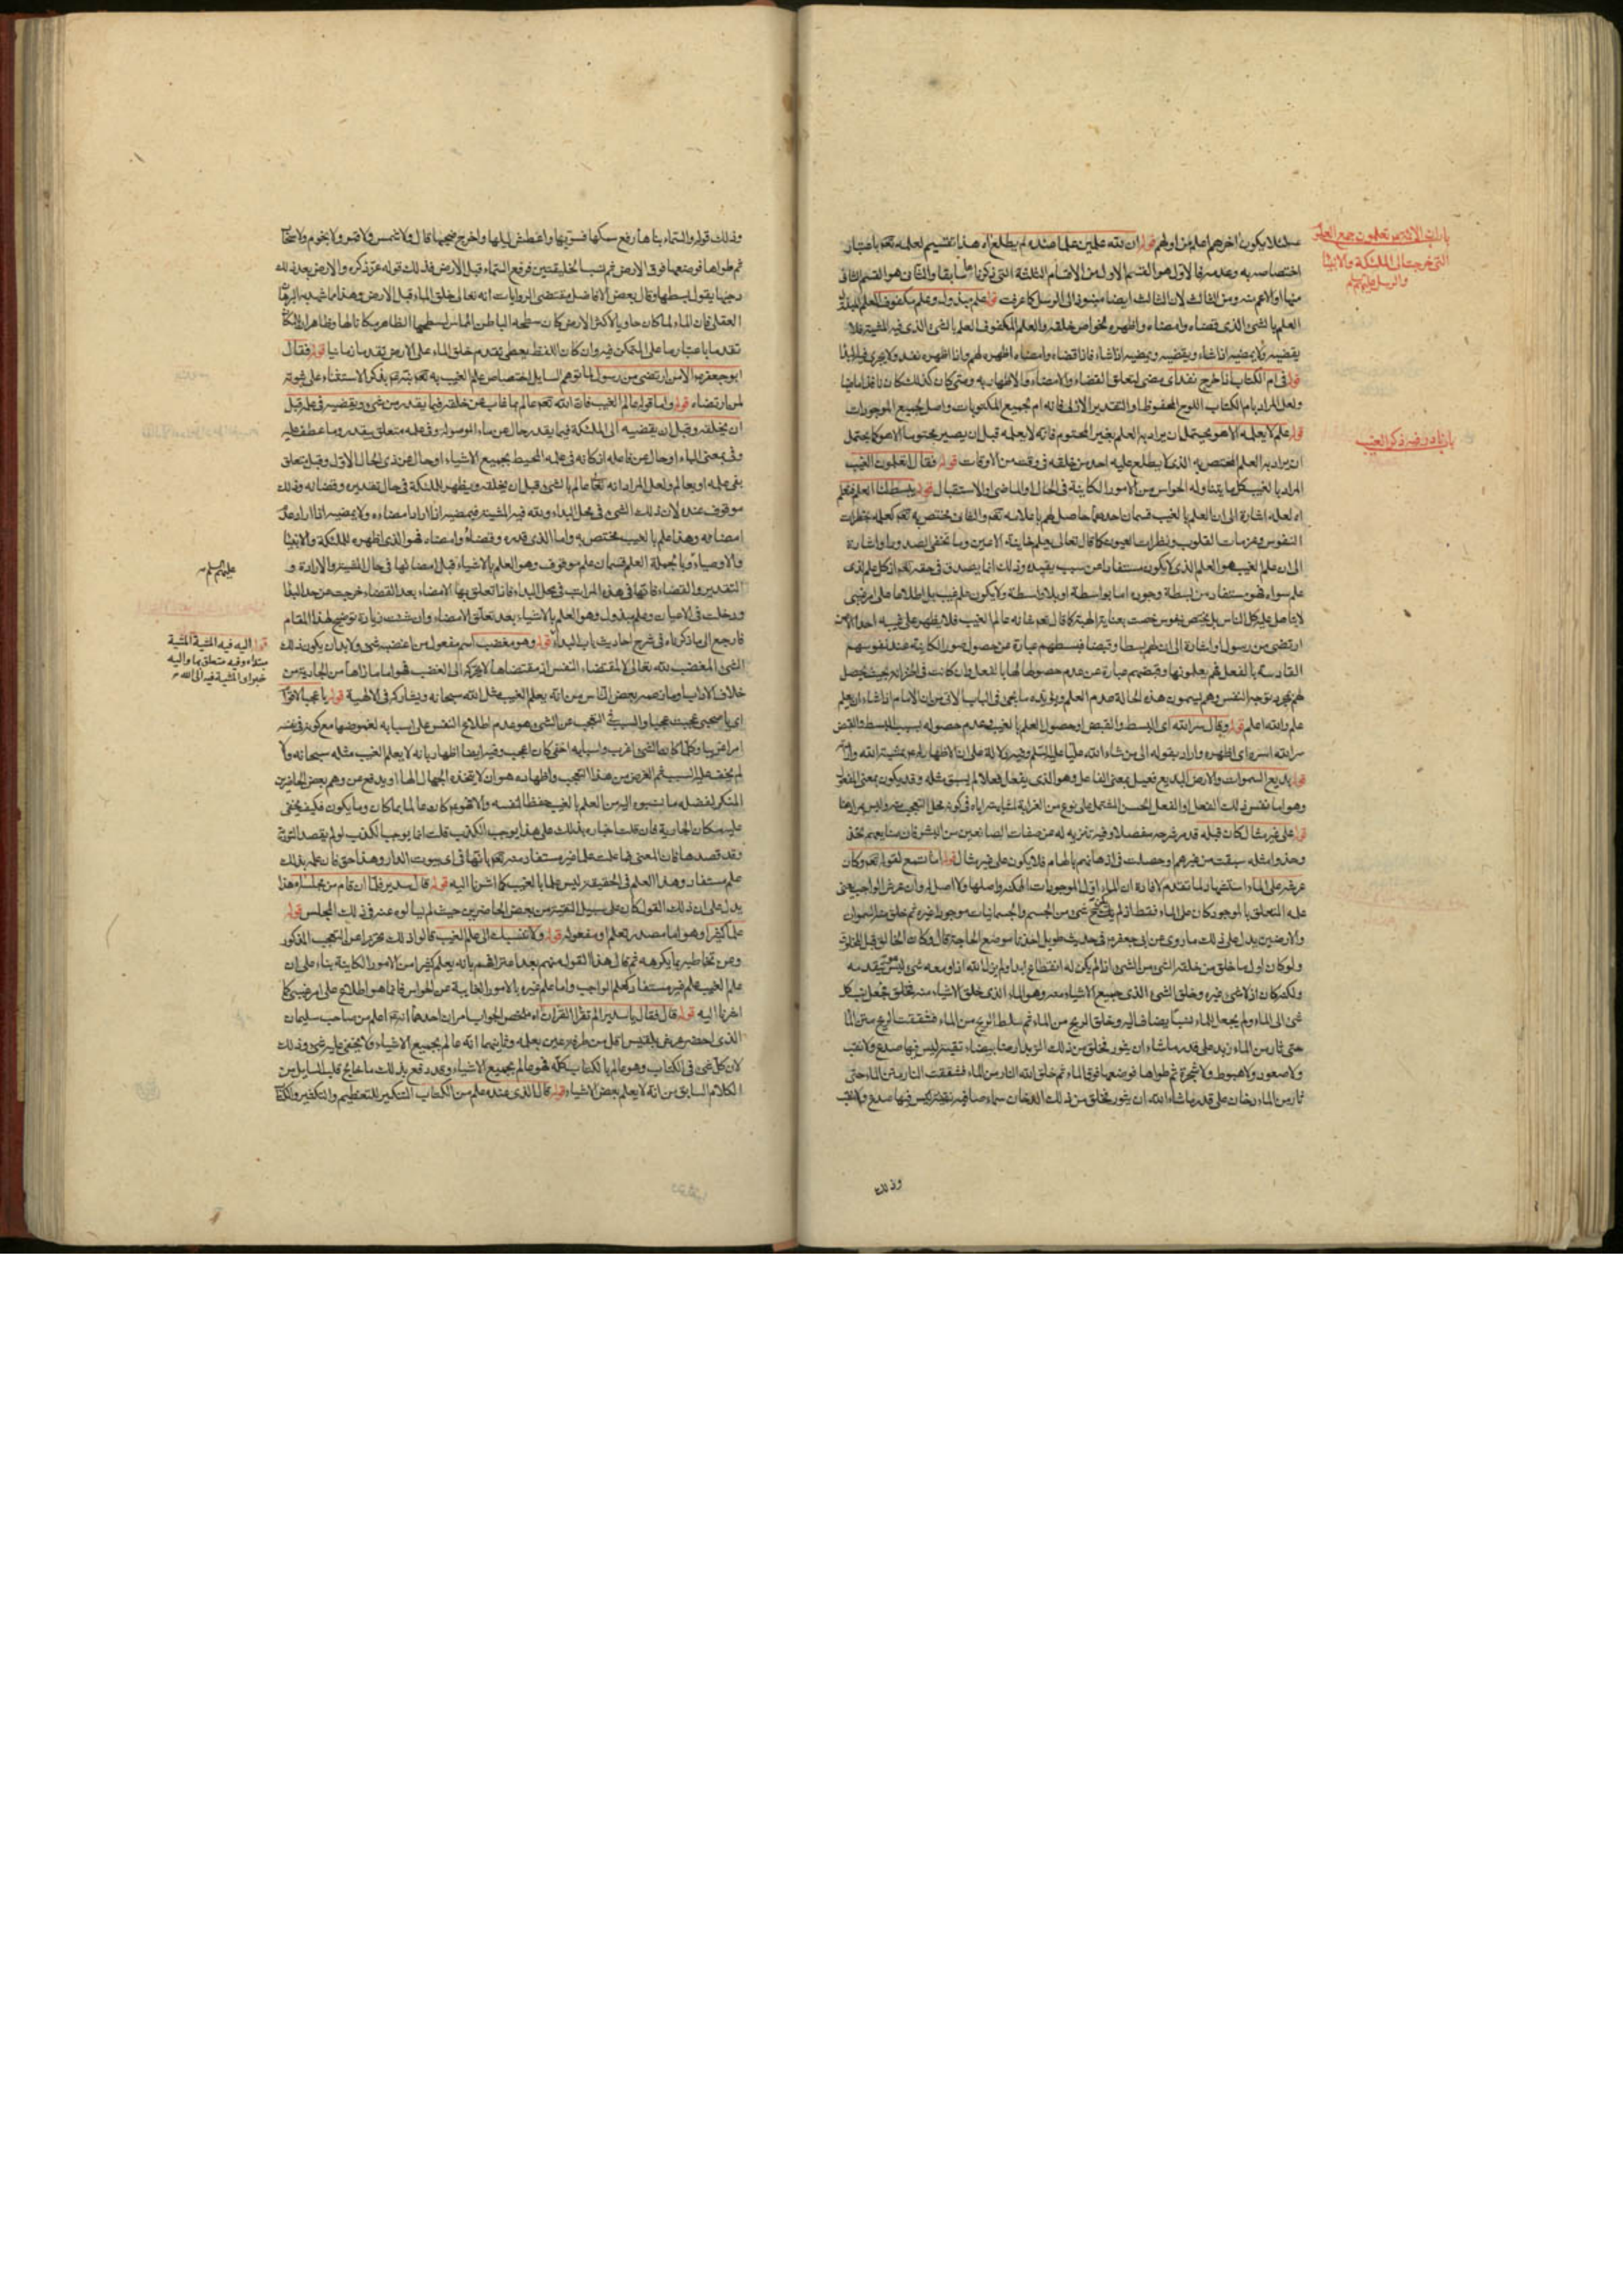 باب ان الائمة يعلمون جميع العلوم
التي خرجت الى الملئكة والانبيا
والرسل عليهم السلم
لئلا يكون اخرهم اعلم من اولهم قوله ان لله علمين علما عنده لم يطلع اه هذا تقسيم لعلمه تعم باعتبار
اختصاصه به وعدمه فالاول هو القسم الاول من الاقسام الثلثة التي ذكرناها سابقا والثاني هو القسم الثاني
منها او الاعم منه ومن الثالث لان الثالث ايضا الى الرسل كما عرفت قوله علم مبذول وعلم مكفوف العلم المبذول
العلم بالشئ الذي قضاه وامضاه واظهره لخواص خلقه والعلم المكفوف العلم بالشئ الذي فيه المشية فلا
يقضيه ولا يمضيه اذا شاء ويقضيه ويمضيه اذا شاء فاذا قضاه وامضاه اظهره لهم واذا اظهره نفذ ولا يجرى فيه البدا
قوله في ام الكتاب اذا خرج نفذ اى مضى لتعلق القضاء والامضاء والاظهار به ومتى كان كذلك كان نافذا ماضيا
ولعل المراد بام الكتاب اللوح المحفوظ او التقدير الازلى فانه ام لجميع المكتوبات واصل لجميع الموجودات
باب نادر فيه ذكر الغيب
قوله علم لا يعلمه الا هو يحتمل ان يراد به العلم بغير المحتوم فانه لا يعلمه قبل ان يصير محتوما الا هو كما يحتمل
ان يراد به العلم المختص به الذى لا يطلع عليه احد من خلقه في وقت من الاوقات قوله فقال اتعلمون الغيب
المراد بالغيب كل ما يتناوله الحواس من الامور الكاينة في الحال او الماضى والاستقبال قوله يبسط لنا العلم فنعلم
اه لعله اشارة الى ان العلم بالغيب قسمان احدهما حاصل لهم باعلامه تعم والثاني مختص به تعم كعلمه بخطرات
النفوس وعزمات القلوب ونظرات العيون كما قال تعالى يعلم خاينة الاعين وما تخفى الصدور او اشارة
الى ان علم الغيب هو العلم الذى لا يكون مستفادا من سبب يفيده وذلك انما يصدق في حقه تعم اذ كل علم لذى
علم سواه فهو مستفاد من بسطه وجوده اما بواسطة او بلا واسطة ولا يكون علم غيب بل اطلاعا على امر غيبى
لا يتاهل عليه كل الناس بل يختص بنفوس خصت بعناية الهية كما قال تعم شانه عالم الغيب فلا يظهر على غيبه احدا الا من
ارتضى من رسول او اشارة الى ان لهم بسطا وقبضا فبسطهم عبارة عن حصول صور الكاينة عند نفوسهم
القادسة بالفعل فهم يعلمونها وقبضهم عبارة عن عدم حصولها لها بالفعل وان كانت في الخزانة بحيث يحصل
لهم بمجرد توجه النفس وهم يسمون هذه الحالة عدم العلم ويؤيده ما يجئ في الباب الاتى من ان الامام اذا شاء ان يعلم
علم والله اعلم قوله وقال سر الله اى البسط والقبض او حصول العلم بالغيب وعدم حصوله بسبب البسط والقبض
سر الله اسره اى اظهره واراد بقوله الى من شاء الله عليا عليه السلم وفيه دلالة على ان الاظهار له بمشية الله وارادته
قوله بديع السموات والارض البديع فعيل بمعنى الفاعل وهو الذى يفعل فعلا لم يسبق مثله وقد يكون بمعنى المفعول
وهو اما نفس ذلك الفعل او الفعل الحسن المشتمل على نوع من الغرابة لمشابهته اياه في كونه محل التعجب منه وليس مرادا هنا
قوله على غير مثال كان قبله قد مر شرحه مفصلا وفيه تنزيه له عن صفات الصانعين من البشر فان صنايعهم تحذى
وحذو امثله سبقت من غيرهم او حصلت في اذهانهم بالهام فلا يكون على غير مثال قوله اما تسمع لقوله تعم وكان
عرشه على الماء استشهاد لما تقدم لافادة ان الماء اول الموجودات الممكنة واصلها ولا اصل له وان عرش الواجب يعنى
علمه المتعلق بالموجود كان على الماء فقط اذ لم يكن شئ من الجسم والجسمانيات موجودا غيره ثم خلق منه السموات
والارضين يدل على ذلك ما روى عن ابى جعفر في حديث طويل اخذنا موضع الحاجة قال وكان الخالق قبل المخلوق
ولو كان اول ما خلق من خلقه الشئ من الشئ اذا لم يكن له انقطاع ابدا ولم يزل الله اذا ومعه شئ ليس هو يتقدمه
ولكنه كان اذ لا شئ غيره وخلق الشئ الذى جميع الاشياء منه وهو الماء الذى خلق الاشياء منه فجعل نسب كل
شئ الى الماء ولم يجعل للماء نسبا يضاف اليه وخلق الريح من الماء ثم سلط الريح على الماء فشققت الريح متن الماء
حتى ثار من الماء زبد على قدر ما شاء ان يثور فخلق من ذلك الزبد ارضا بيضاء نقية ليس فيها صدع ولا نقب
ولا صعود ولا هبوط ولا شجرة ثم طواها فوضعها فوق الماء ثم خلق الله النار من الماء فشققت النار متن الماء حتى
ثار من الماء دخان على قدر ما شاء الله ان يثور فخلق من ذلك الدخان سماء صافية نقية ليس فيها صدع ولا نقب
وذلك
وذلك قوله والسماء بناها رفع سمكها فسويها واغطش ليلها واخرج ضحيها قال ولا شمس ولا قمر ولا نجوم ولا سحاب
ثم طواها فوضعها فوق الارض ثم نسب الخليقتين فرفع السماء قبل الارض فذلك قوله عز ذكره والارض بعد ذلك
دحيها يقول بسطها وقال بعض الافاضل مقتضى الروايات انه تعالى خلق الماء قبل الارض وهذا مما شهد به البرهان
العقلى فان الماء لما كان حاويا لاكثر الارض كان سطحه الباطن المماس لسطحها الظاهر مكانا لها وظاهر ان للمكان
تقدما باعتبار ما على المتمكن فيه وان كان اللفظ يعطى تقدم خلق الماء على الارض تقدما زمانيا قوله فقال
ابو جعفر الا من ارتضى من رسول لما توهم السايل اختصاص علم الغيب به تعم نبه بذكر الاستثناء على ثبوته
لمن ارتضاه قوله واما قوله عالم الغيب فان الله تعم عالم بما غاب عن خلقه فيما يقدر من شئ ويقضيه في علمه قبل
ان يخلقه وقبل ان يقضيه الى الملئكة فيما يقدر حال عن ماء الموصولة وفي علمه متعلق بيقدر وما عطف عليه
وفي بمعنى الباء او حال عن فاعله اذ كانه في علمه المحيط بجميع الاشياء او حال عن ذى الحال الاول وقبل تعلق
بفى علمه او بعالم ولعل المراد انه تعم عالم بالشئ قبل ان يخلقه ويظهره للملئكة في حال تقديره وقضائه وذلك
موقوف عنده لان ذلك الشئ في محل البداء ولله فيه المشية فيمضيه اذا اراد امضاءه ولا يمضيه اذا اراد عدم
امضائه وهذا علم بالغيب مختص به واما الذى قدره وقضاه وامضاه فهو الذى اظهره للملئكة والانبيا
والاوصياء وبالجملة العلم قسمان علم موقوف وهو العلم بالاشياء قبل امضائها في حال المشية والارادة و
عليهم السلم
التقدير والقضاء فانها في هذه المراتب في محل البداء فاذا تعلق بها الامضاء بعد القضاء خرجت من حد البدا
ودخلت في الاعيان وعلم مبذول وهو العلم بالاشياء بعد تعلق الامضاء وان شئت زيادة توضيح لهذا المقام
فارجع الى ما ذكرناه في شرح احاديث باب البداء قوله وهو مغضب اسم مفعول من اغضبه شئ ولا بد ان يكون ذلك
قوله اليه فيه المشية المشية
مبتداء وفيه متعلق بها واليه
خبر او المشية فيه الى الله
الشئ المغضب لله تعالى لا لمقتضاء النفس اذ مقتضاها لا يحركه الى الغضب فهو اما ما زاها من الجارية من
خلاف الاداب او ما زعمه بعض الناس من انه يعلم الغيب مثل الله سبحانه ويشاركه في الالهية قوله يا عجبا لاقوام
اى يا صحبى عجبت عجبا والسبب في التعجب عن الشئ هو عدم اطلاع النفس على اسبابه لغموضها مع كونه في نفسه
امرا غريبا وكلما كان الشئ اغرب واسبابه اخفى كان اعجب وفيه ايضا اظهار بانه لا يعلم الغيب مثله سبحانه والا
لم يخف عليه السبب ثم الغرض من هذا التعجب واظهاره هو ان لا يتخذه الجهال الها او يدفع عن وهم بعض الحاضرين
المنكر لفضله ما نسبوه اليه من العلم بالغيب حفظا لنفسه والا فهو كان عالما بما كان وما يكون فكيف يخفى
عليه مكان الجارية فان قلت اخباره بذلك على هذا يوجب الكذب قلت انما يوجب الكذب لو لم يقصد التورية
وقد قصدها فان المعنى فما علمت علما غير مستفاد منه تعم بانها في اى بيوت الدار وهذا حق فان علمه بذلك
علم مستفاد وهذا العلم في الحقيقة ليس علما بالغيب كما اشرنا اليه قوله قال سدير فلما ان قام من مجلسه اه هذا
يدل على ان ذلك القول كان على سبيل التقية من بعض الحاضرين حيث لم يسالوه عنه في ذلك المجلس قوله
علما كثيرا وهو اما مصدر لتعلم او مفعوله قوله ولا ننسبك الى علم الغيب قالوا ذلك تحرزا عن التعجب المذكور
وعن تخاطبه بما يكرهه ثم قال هذا القول منهم بعد اعترافهم بانه يعلم كثيرا من الامور الكاينة بناء على ان
علم الغيب علم غير مستفاد كعلم الواجب واما علم غيره بالامور الغايبة عن الحواس فانما هو اطلاع على امر غيبى كما
اشرنا اليه قوله قال فقال يا سدير الم تقرا القران اه ملخص الجواب امران احدهما انه اعلم من صاحب سليمان
الذى احضر عرش بلقيس اقل من طرفة عين بعلمه وثانيهما انه عالم بجميع الاشياء ولا يخفى عليه شئ وذلك
لان كل شئ في الكتاب وهو عالم بالكتاب كله فهو عالم بجميع الاشياء وقد دفع بذلك ما خالج قلب السايل من
الكلام السابق من انه لا يعلم بعض الاشياء قوله قال الذى عنده علم من الكتاب التنكير للتعظيم والتكثير والكتاب